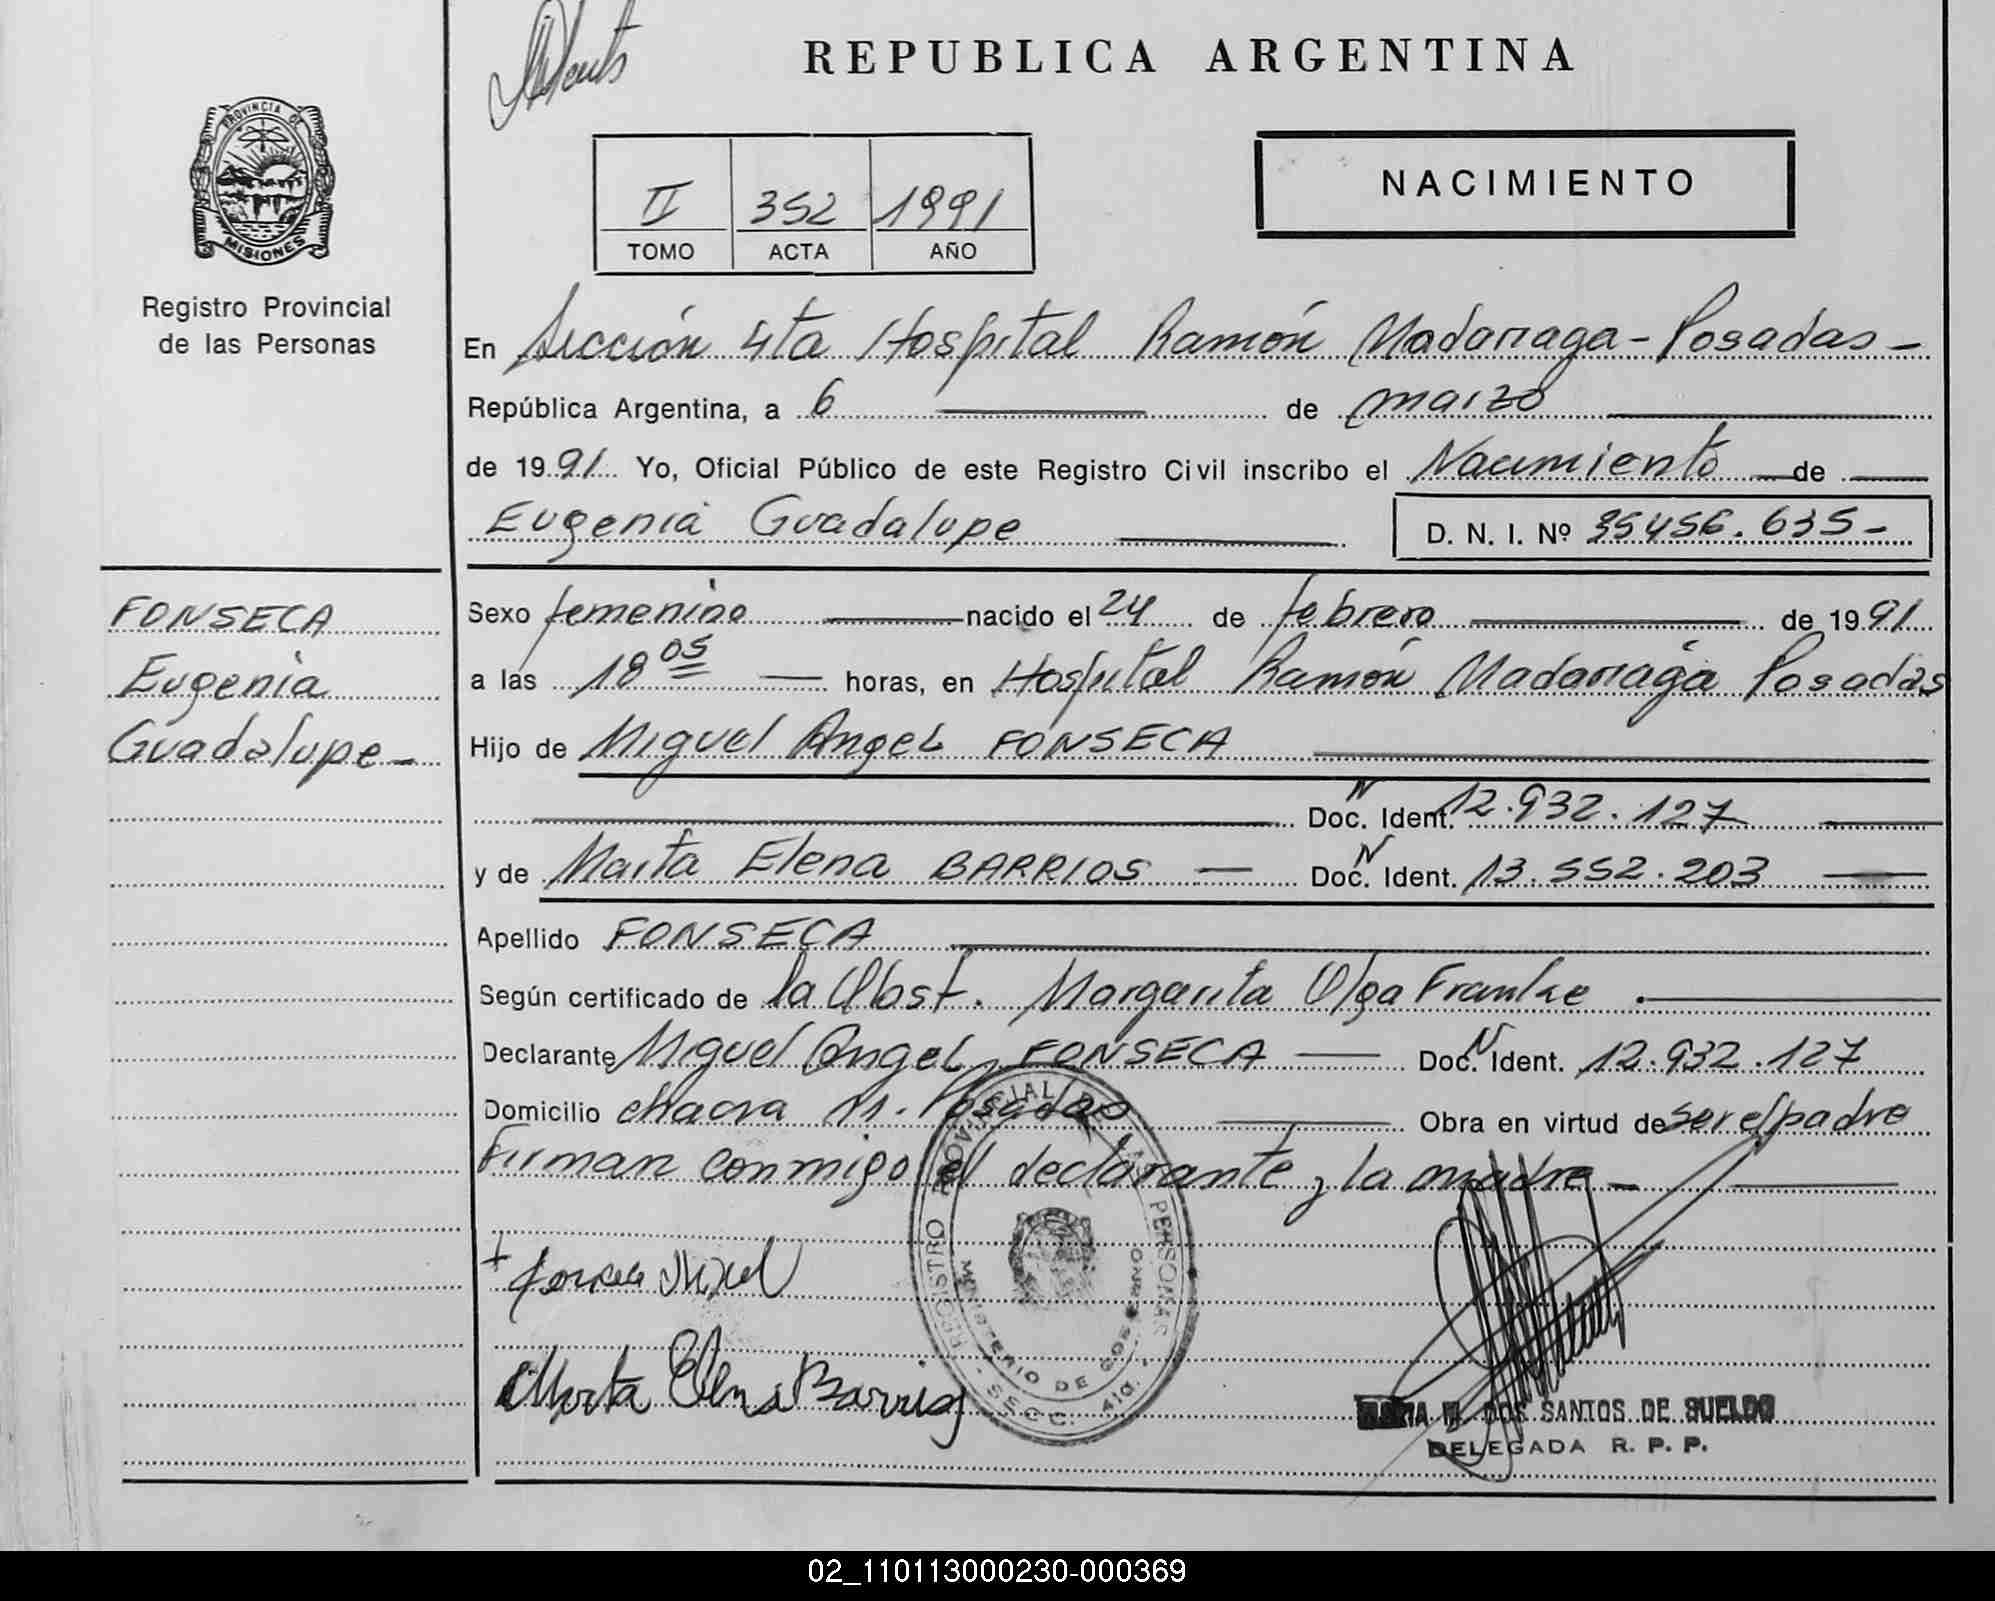 REPUBLICA ARGENTINA
PROVINCIA DE
MISIONES
Registro Provincial
de las Personas
II 352 1991
TOMO ACTA AÑO
NACIMIENTO
En Sección 4ta Hospital Ramón Madariaga - Posadas -
República Argentina, a 6 de marzo
de 1991 Yo, Oficial Público de este Registro Civil inscribo el Nacimiento de
Eugenia Guadalupe D. N. I. Nº 35456.635-
FONSECA
Eugenia
Guadalupe -
Sexo femenino nacido el 24 de febrero de 1991
a las 18 05 horas, en Hospital Ramón Madariaga Posadas
Hijo de Miguel Angel FONSECA
Doc. N Ident. 12.932.127
y de Marta Elena BARRIOS Doc. N Ident. 13.552.203
Apellido FONSECA
Según certificado de la Obst. Margarita Olga Franke.
Declarante Miguel Angel FONSECA Doc. N Ident. 12.932.127
Domicilio chacra Posadas Obra en virtud de ser el padre
Firman conmigo el declarante y la madre -
Marta Elena Barrios
REGISTRO PROVINCIAL DE LAS PERSONAS
MINISTERIO DE GOBIERNO
- SECC. 4ta. -
DOS SANTOS DE SUELDO
DELEGADA R. P. P.
02_110113000230-000369